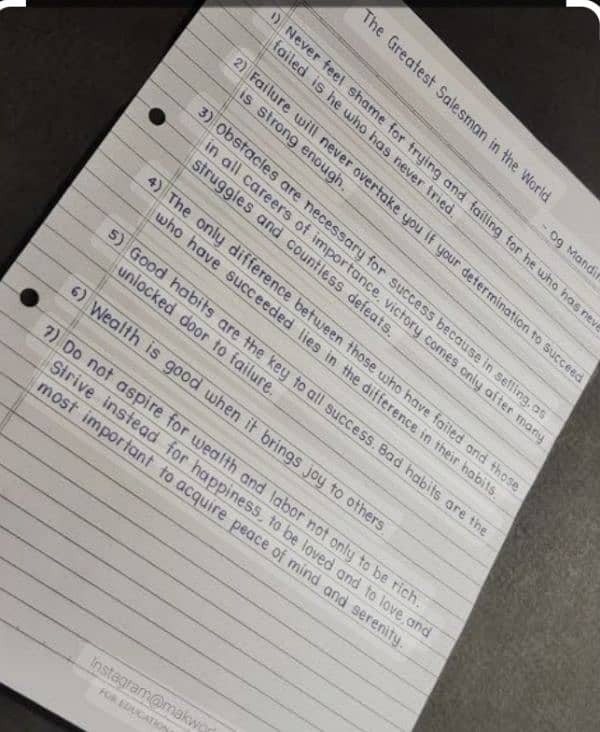 The Greatest Salesman in the World
- Og Mandin
1) Never feel shame for trying and failing for he who has never
failed is he who has never tried.
2) Failure will never overtake you if your determination to succeed
is strong enough.
3) Obstacles are necessary for success because in selling, as
in all careers of importance, victory comes only after many
struggles and countless defeats.
4) The only difference between those who have failed and those
who have succeeded lies in the difference in their habits.
5) Good habits are the key to all success. Bad habits are the
unlocked door to failure.
6) Wealth is good when it brings joy to others.
7) Do not aspire for wealth and labor not only to be rich.
Strive instead for happiness, to be loved and to love, and
most important to acquire peace of mind and serenity.
Instagram@makwor
FOR EDUCATION